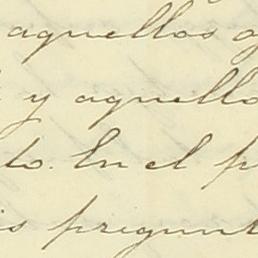 aquellos
y aquello
to. En el p
is pregunt